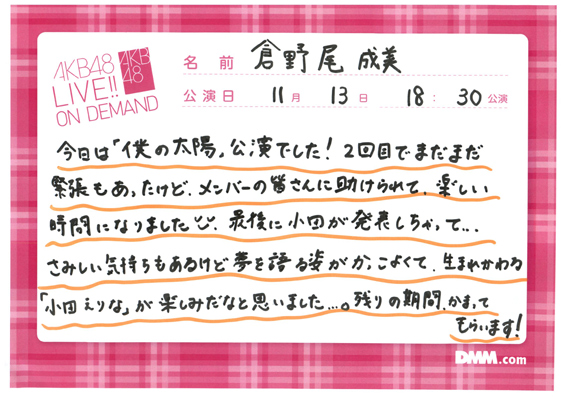 AKB48
LIVE!!
ON DEMAND
AKB
48
名 前 倉野尾 成美
公演日 11月 13日 18: 30公演
今日は「僕の太陽」公演でした! 2回目でまだまだ
緊張もあったけど、メンバーの皆さんに助けられて、楽しい
時間になりました 最後に小田が発表しちゃって...
さみしい気持ちもあるけど夢を語る姿がかっこよくて、生まれかわる
「小田えりな」が楽しみだなと思いました...。残りの期間、かまって
もらいます!
DMM.com